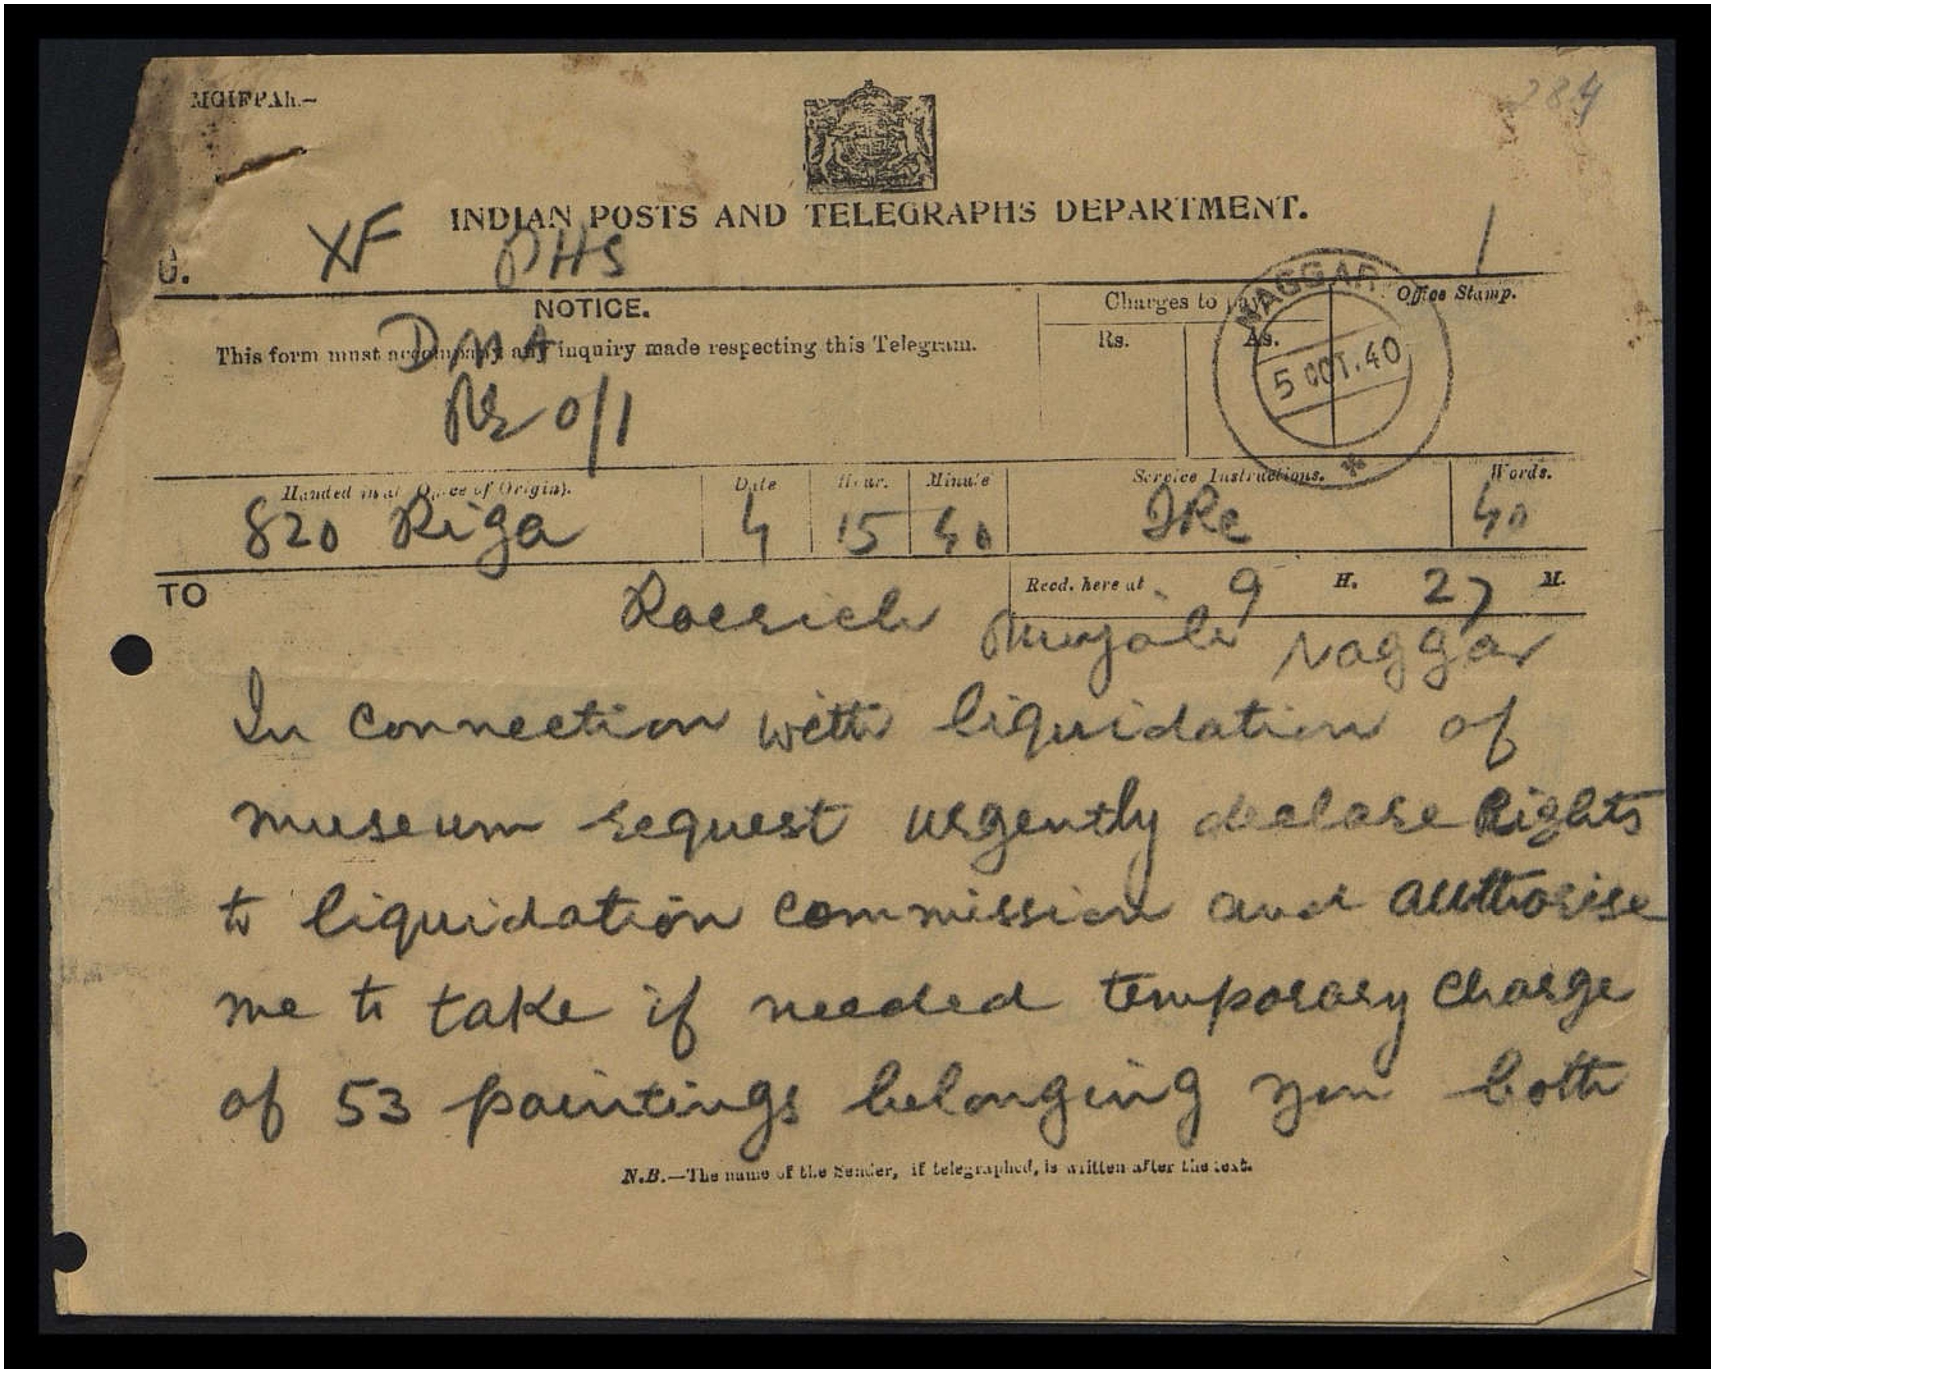 284
INDIAN POSTS AND TELEGRAPHS DEPARTMENT.
C. XF DHS
NOTICE.
This form must accompany any inquiry made respecting this Telegram.
Rs 0/1
Charges to pay.
Rs. As.
Office Stamp.
NAGGAR
5 OCT.40
Handed in at (Office of Origin). Date Hour. Minute Service Instructions. Words.
820 Riga 4 15 40 40
TO
Recd. here at 9 H. 27 M.
Roerich Naggar
In connection with liquidation of
museum request urgently declare Rights
to liquidation commission and authorise
me to take if needed temporary charge
of 53 paintings belonging you both
N.B.—The name of the Sender, if telegraphed, is written after the text.